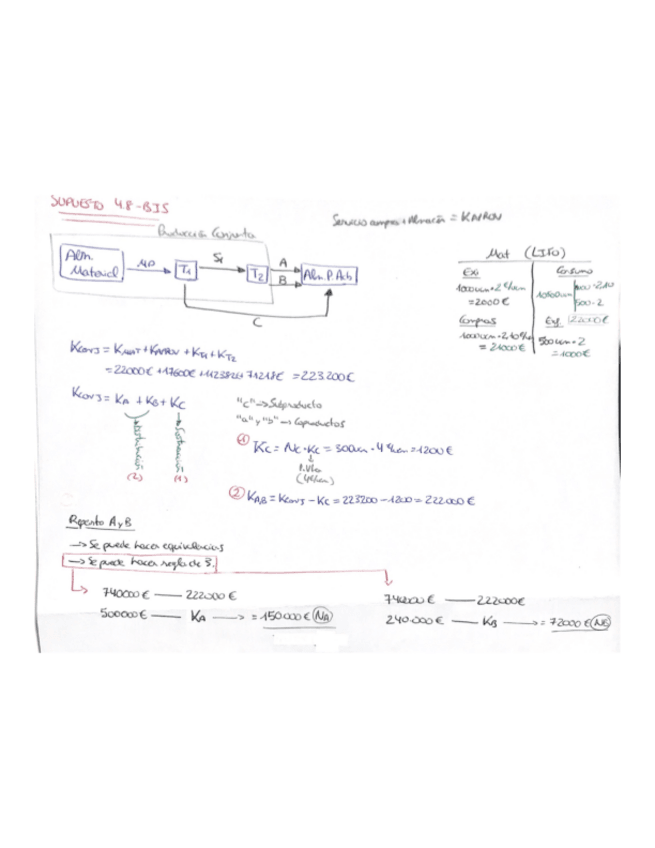 SUPUESTO 4.8-BIS
Servicio compras + Almacén = KAPROV
Producción Conjunta
Alm. Material
MP
T1
S1
T2
A
B
Alm. P. Acb
C
Mat (LIFO)
Exi
Consumo
1000um·2€/um
= 2000€
500·2
Compras
Exf
22000€
= 21000€
500um·2
= 1000€
Kconj = KMAT + KAPROV + KT1 + KT2
= 22000€ + 17600€ + 112382€ + 71218€ = 223.200€
Kconj = KA + KB + KC
"c" → Subproducto
"a" y "b" → Coproductos
(2)
(1)
① KC = NC·KC = 300um·4€/um = 1200€
P.Vta
(4€/um)
② KA,B = Kconj - KC = 223200 - 1200 = 222.000€
Reparto A y B
→ Se puede hacer equivalencias
→ Se puede hacer regla de 3.
740000€ — 222000€
500000€ — KA → = 150.000€ (NA)
740000€ — 222000€
240.000€ — KB → = 72000€